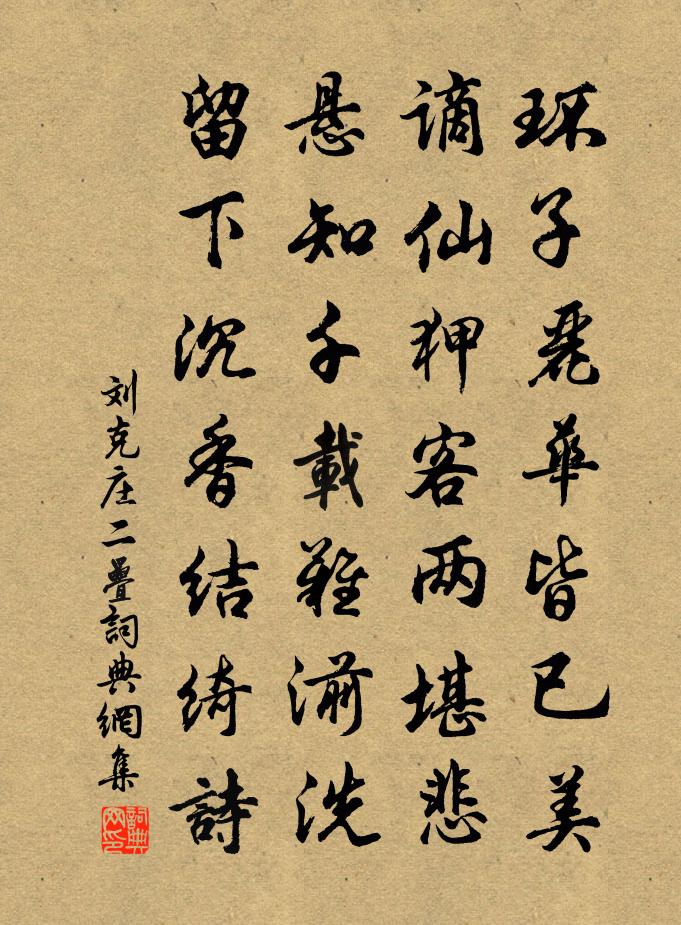 环子麗華皆已美
谪仙狎客两堪悲
悬知千載難湔洗
留下沉香结绮詩
刘克庄二疊詞典網集
詞典网印